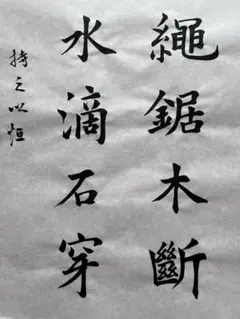 繩鋸木斷
水滴石穿
持之以恒